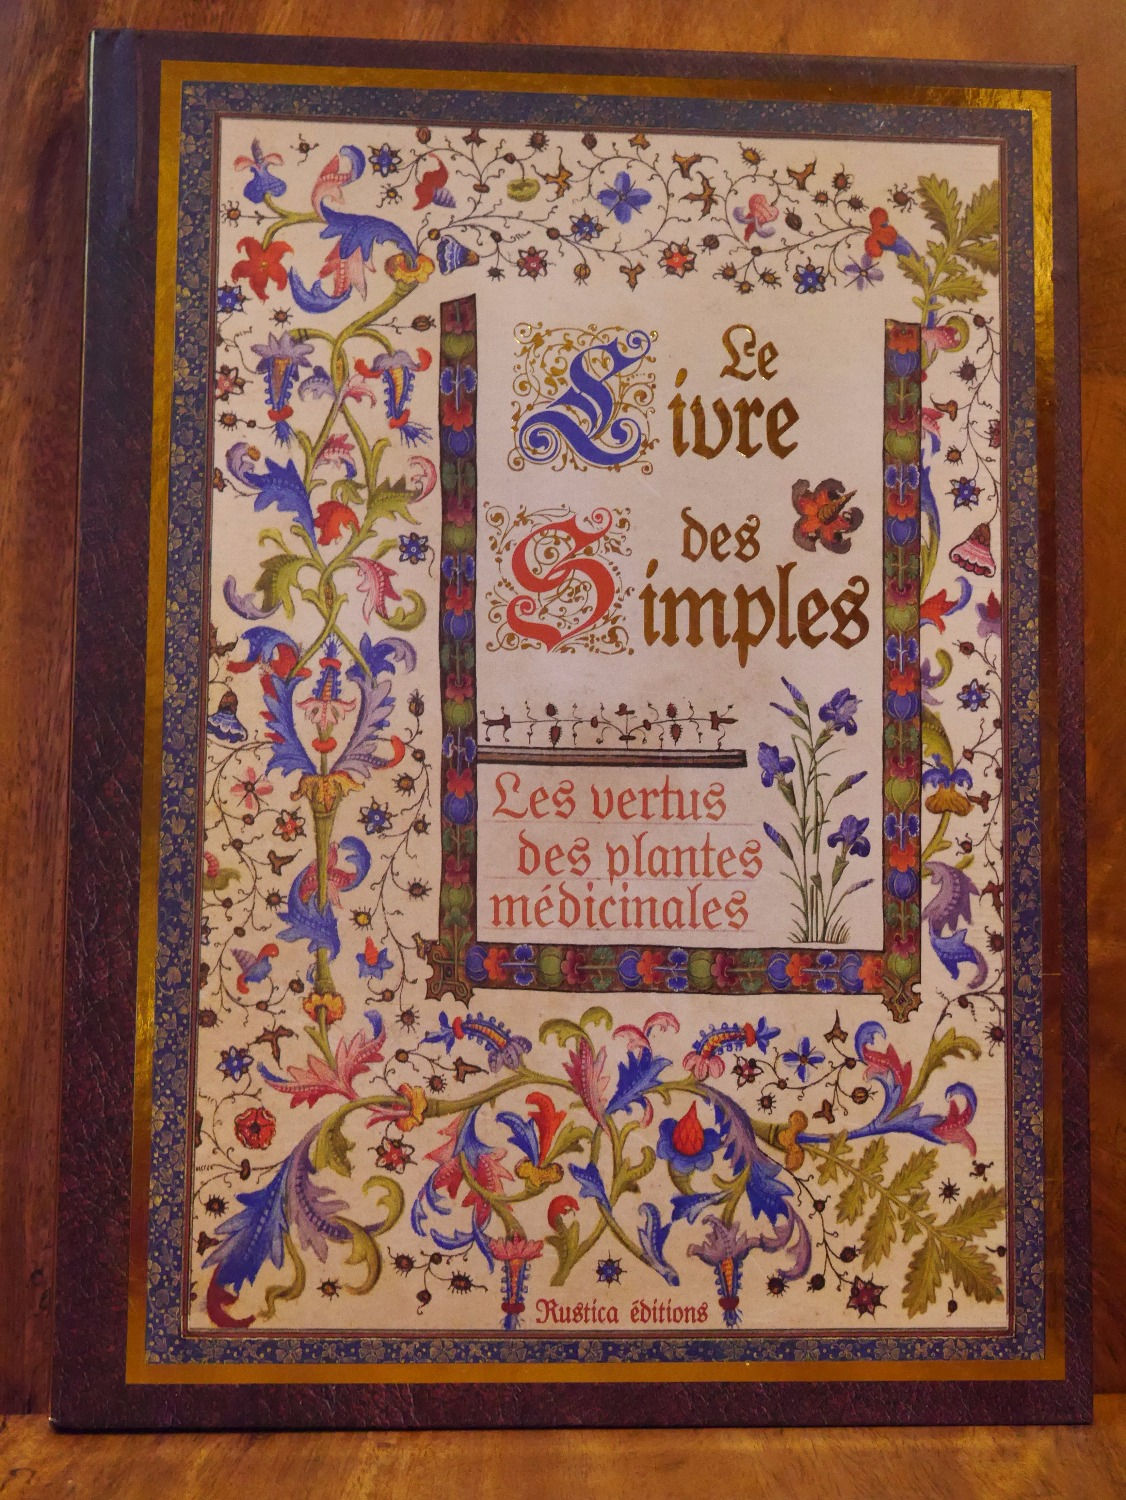 Le
Livre
des
Simples
Les vertus
des plantes
médicinales
Rustica éditions